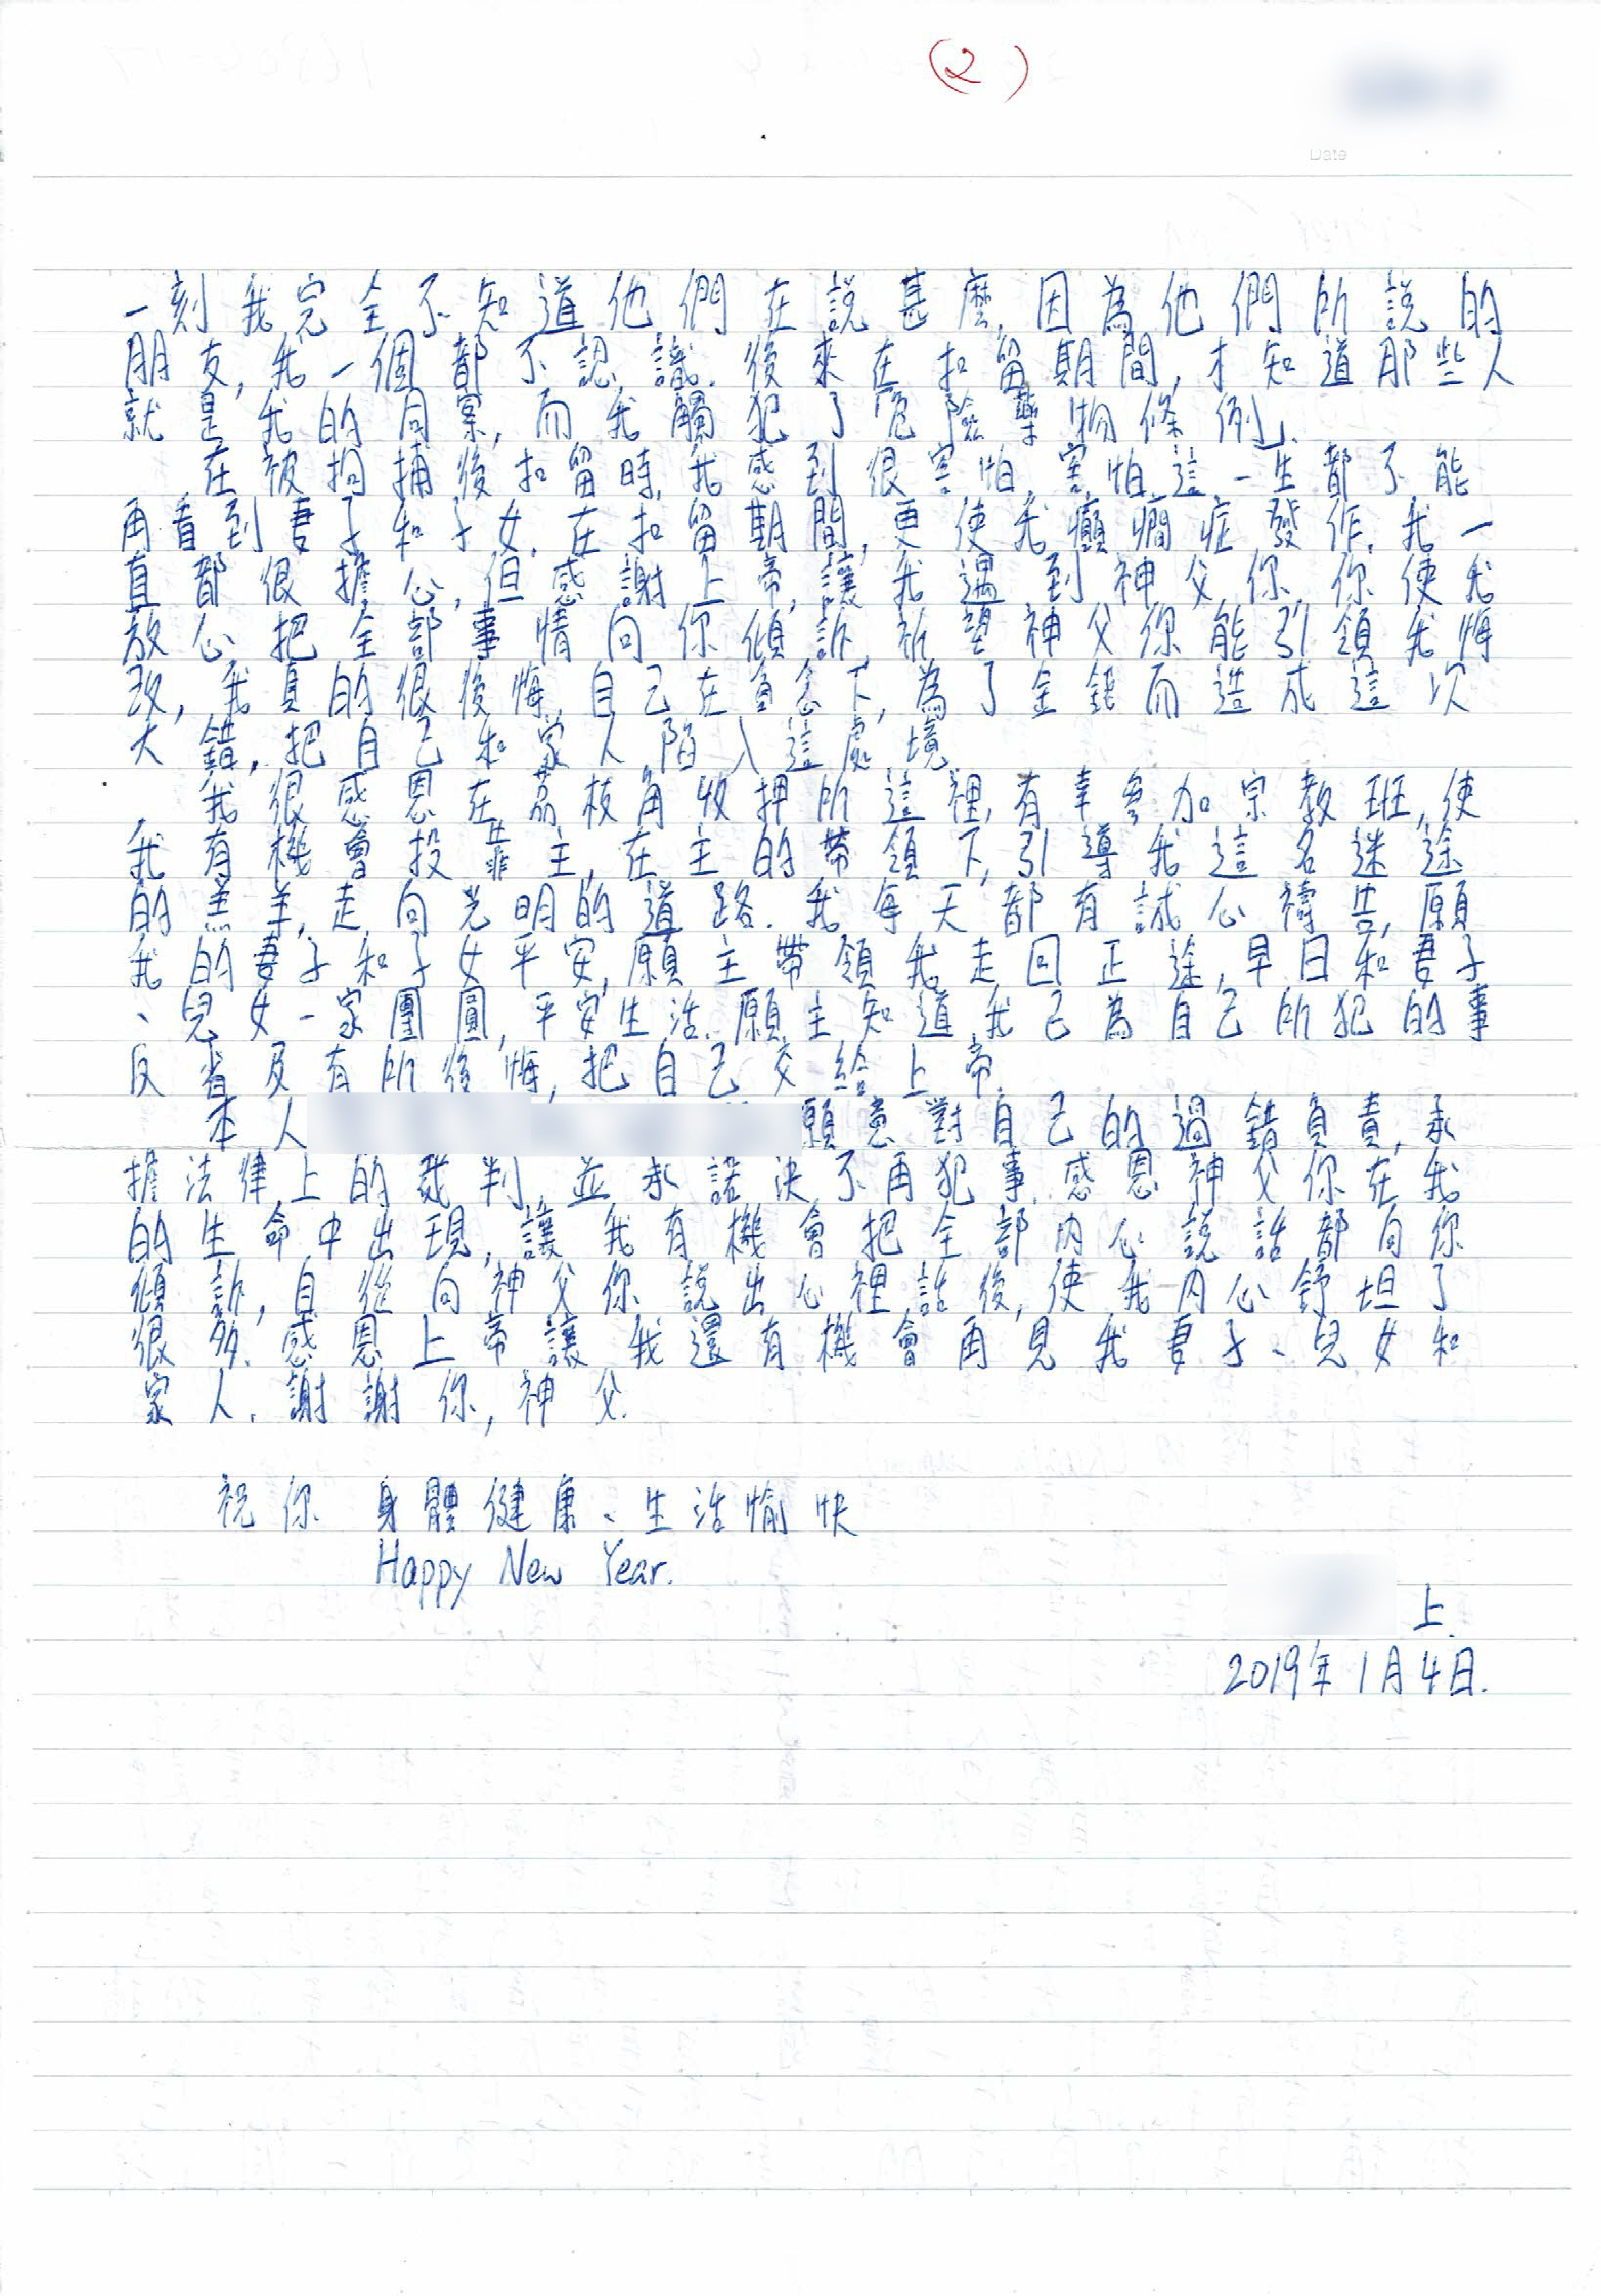 (2)
Date
一刻我完全不知道他們在說甚麼,因為他們所說的
朋友,我一個都不認識.後來在扣留期間,才知道那些人
就是我的同案,而我觸犯了「危險藥物條例」.
在被拘捕後扣留時,我感到很害怕,害怕這一生都不能
再看到妻子和子女.在扣留期間,更使我癲癇症發作.我一
直都很擔心,但感謝上帝,讓我遇到神父你,你使我
放心把全部事情向你傾訴,祈望神父你能引領我悔
改,我真的很後悔自己在貪念下,為了金錢而造成這次
大錯,把自己和家人陷入這處境.
我很感恩在荔枝角收押所這裡,有幸參加宗教班,使
我有機會投靠主,在主的帶領下,引導我這名迷途
的羔羊,走向光明的道路.我每天都有誠心禱告,願
我的妻子和子女平安,願主帶領我走回正途,早日和妻子
、兒女一家團圓,平安生活.願主知道我已為自己所犯的事
反省及有所後悔,把自己交給上帝.
本人 願意對自己的過錯負責,承
擔法律上的裁判,並承諾決不再犯事.感恩神父你在我
的生命中出現,讓我有機會把全部內心說話都向你
傾訴,自從向神父你說出心裡話後,使我內心舒坦了
很多.感恩上帝讓我還有機會再見我妻子、兒女和
家人.謝謝你,神父.
祝你 身體健康、生活愉快
Happy New Year.
上.
2019年1月4日.